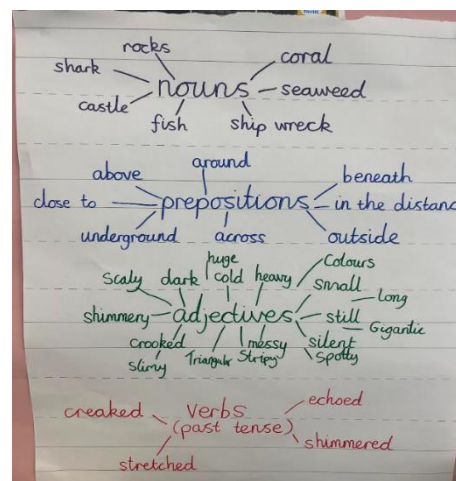 rocks
coral
shark
nouns
seaweed
castle
fish
ship wreck
around
above
beneath
close to
prepositions
in the distanc
underground
across
outside
huge
Colours
scaly
dark
cold
heavy
small
Long
shimmery
adjectives
still
Gigantic
crooked
messy
silent
slimy
Triangular
Stripy
spotty
echoed
creaked
verbs
(past tense)
shimmered
stretched